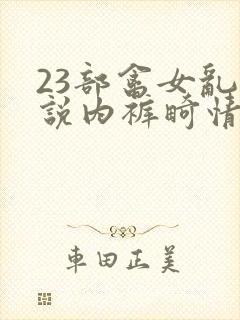 23部畲女乱
説内裤畸情
車田正美